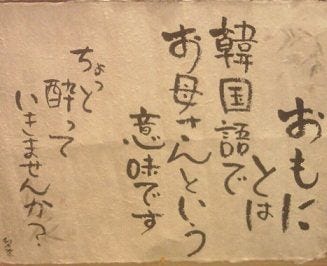 おもに
とは
韓国語で
お母さんという
意味です
ちょっと
酔って
いきませんか？